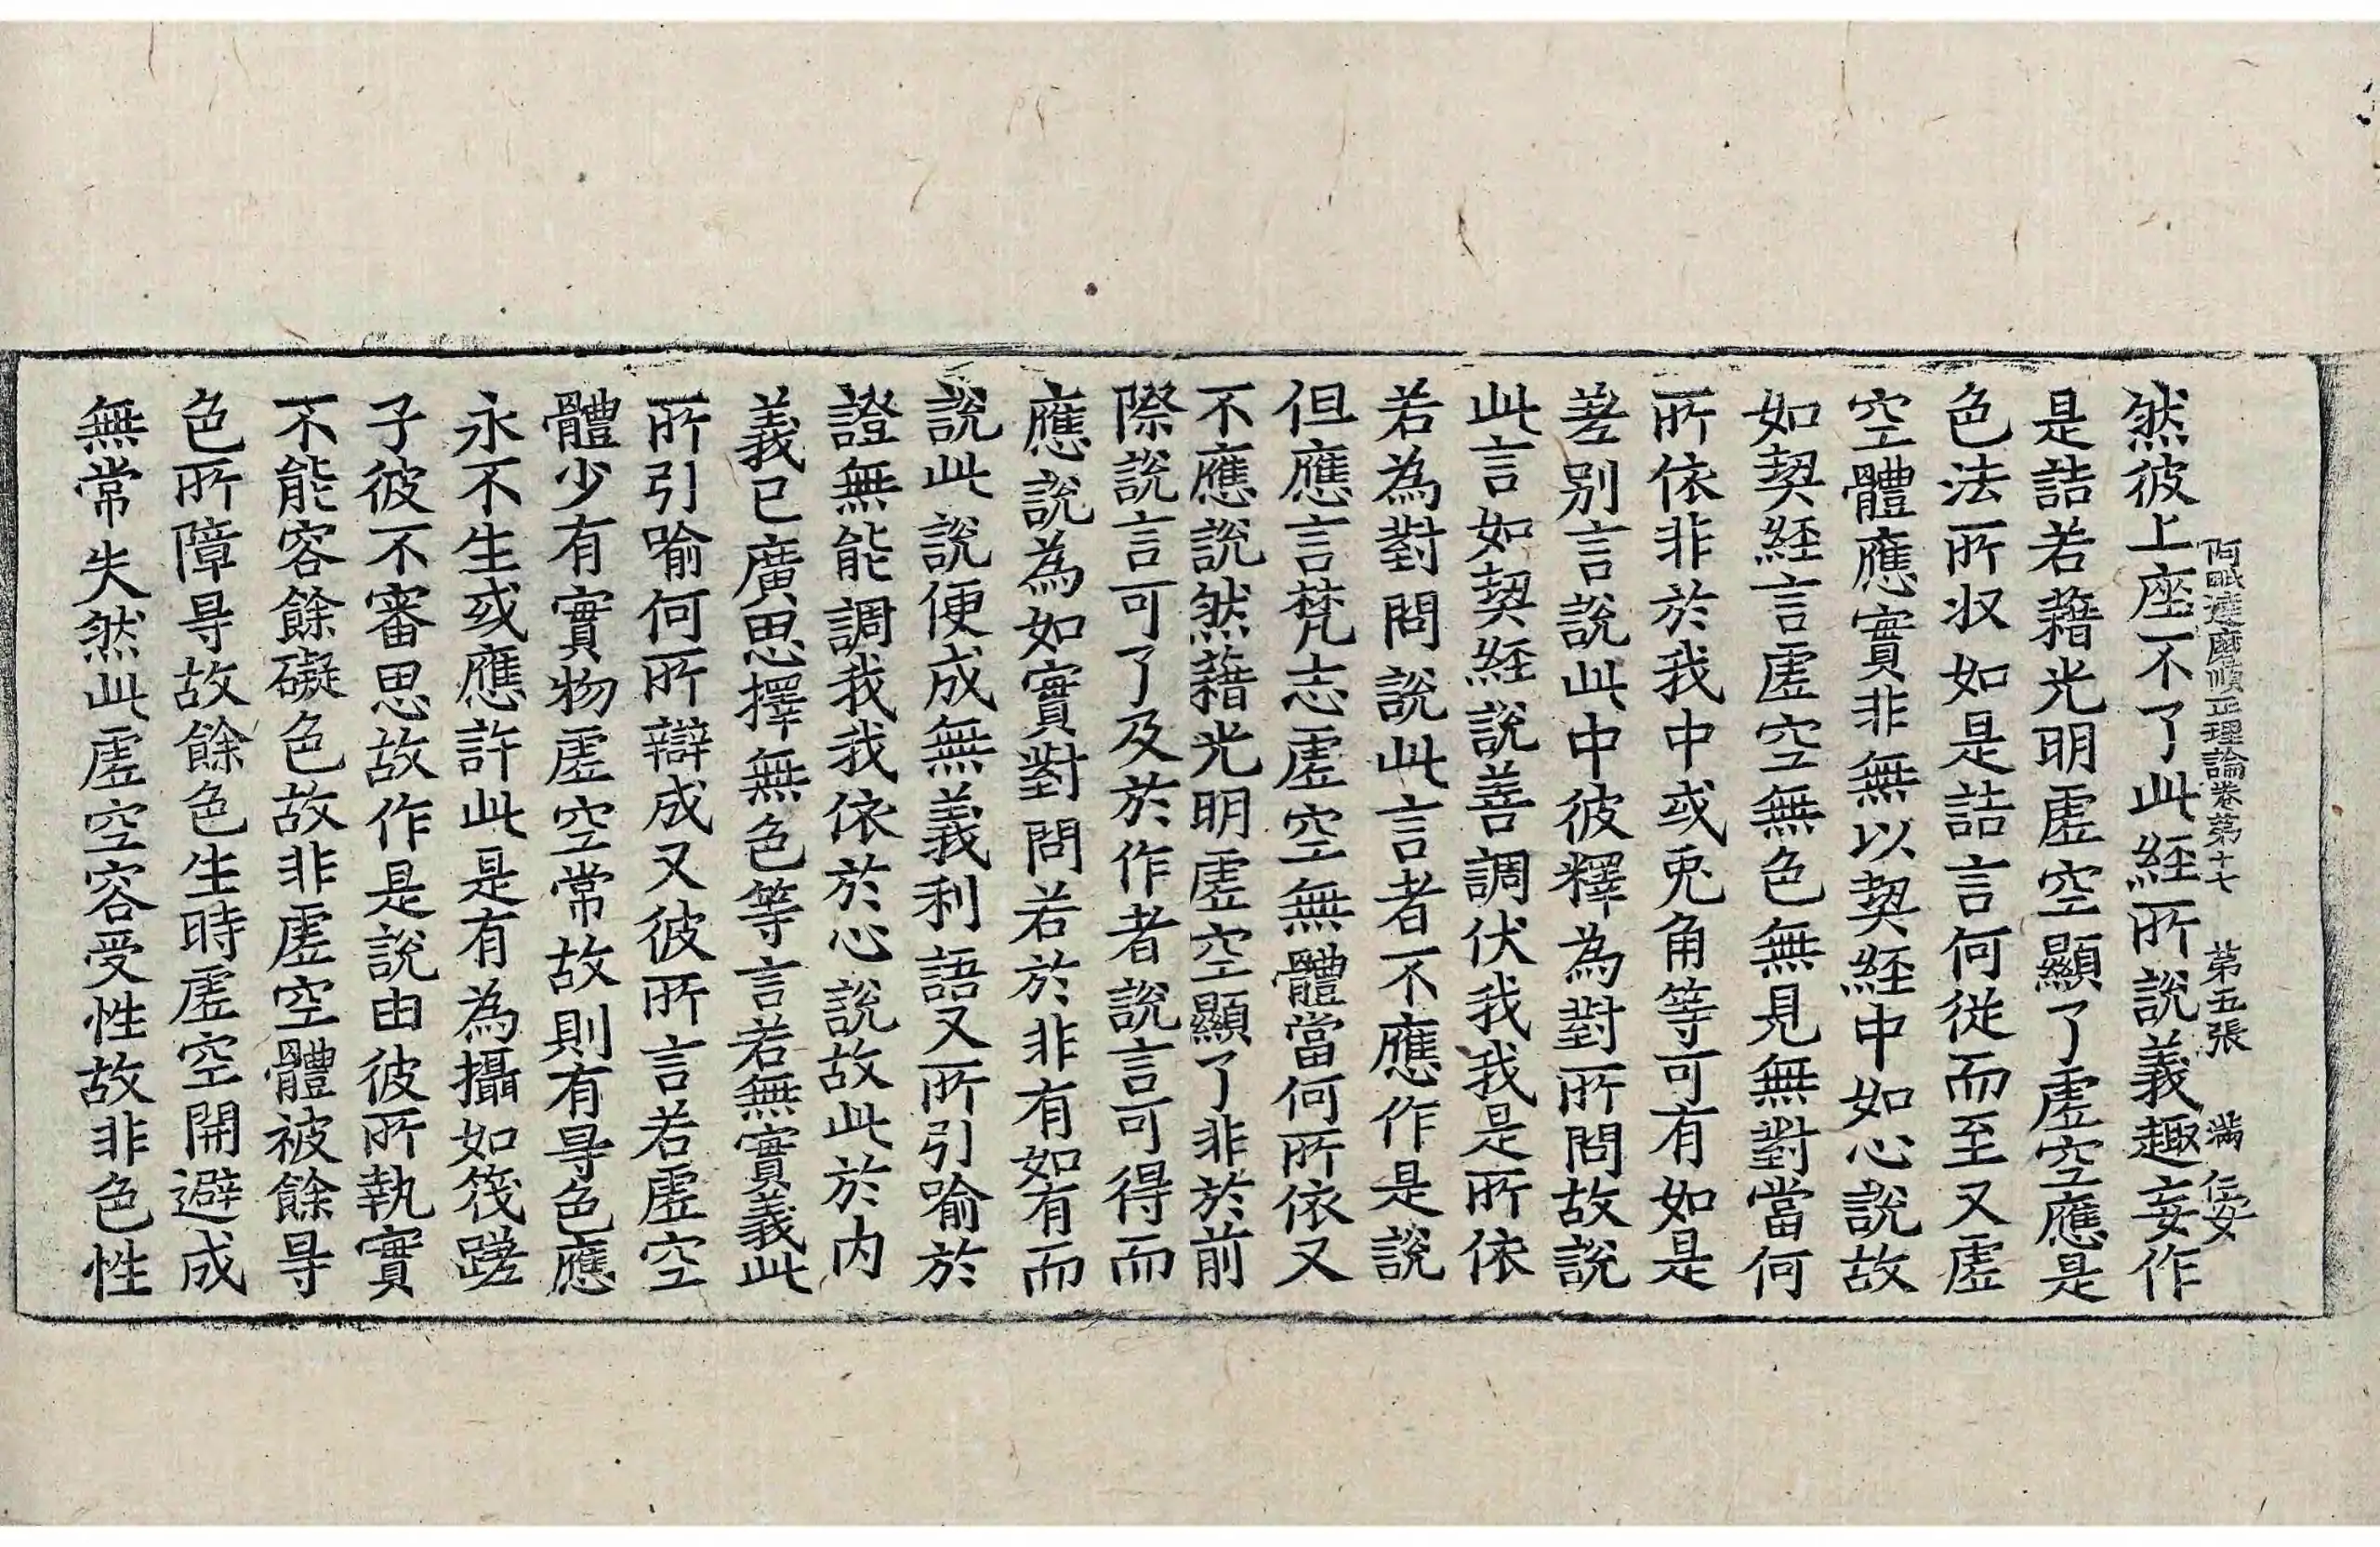 阿毗達磨順正理論卷第十七　第五張　滿　仁安
然彼上座不了此經所說義趣妄作
是詰若藉光明虛空顯了虛空應是
色法所収如是詰言何從而至又虛
空體應實非無以契經中如心說故
如契經言虛空無色無見無對當何
所依非於我中或兎角等可有如是
差別言說此中彼釋為對所問故說
此言如契經說善調伏我我是所依
若為對問說此言者不應作是說
但應言梵志虛空無體當何所依又
不應說然藉光明虛空顯了非於前
際說言可了及於作者說言可得而
應說為如實對問若於非有如有而
說此說便成無義利語又所引喻於
證無能調我我依於心說故此於內
義已廣思擇無色等言若無實義此
所引喻何所辯成又彼所言若虛空
體少有實物虛空常故則有㝵色應
永不生或應許此是有為攝如筏蹉
子彼不審思故作是說由彼所執實
不能容餘礙色故非虛空體被餘㝵
色所障㝵故餘色生時虛空開避成
無常失然此虛空容受性故非色性